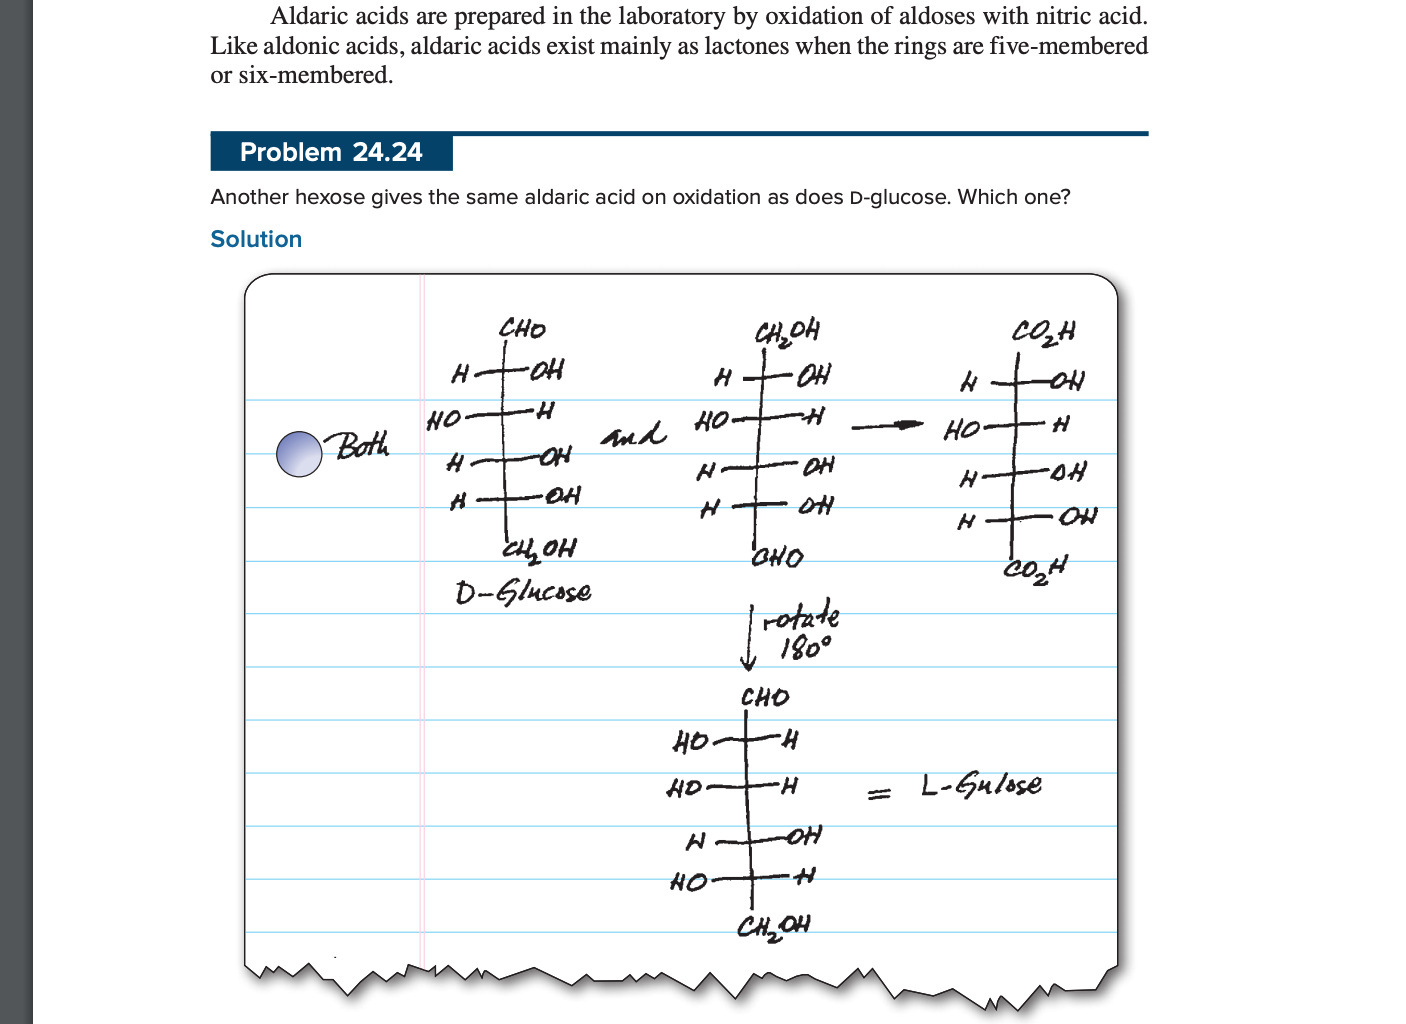 Aldaric acids are prepared in the laboratory by oxidation of aldoses with nitric acid.
Like aldonic acids, aldaric acids exist mainly as lactones when the rings are five-membered
or six-membered.
Problem 24.24
Another hexose gives the same aldaric acid on oxidation as does D-glucose. Which one?
Solution
CHO CH₂OH CO₂H
H OH H OH H OH
HO H HO H HO H
Both and
H OH H OH H OH
H OH H OH H OH
CH₂OH CHO CO₂H
D-Glucose
rotate
180°
CHO
HO H
HO H = L-Gulose
H OH
HO H
CH₂OH